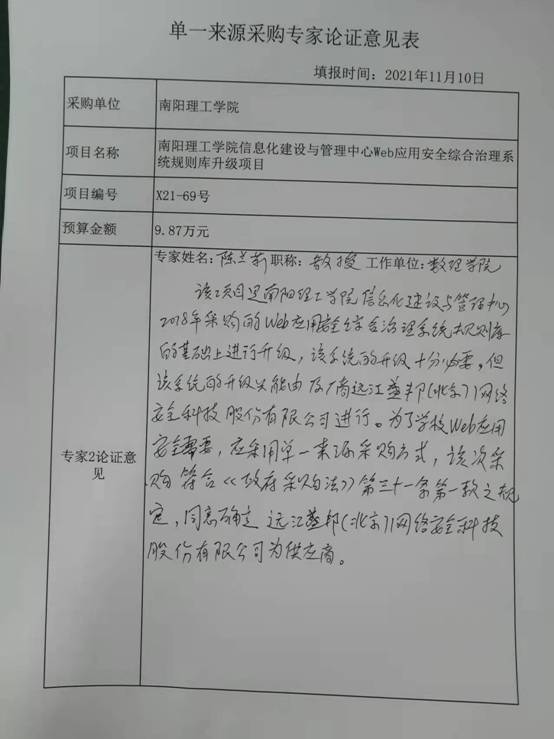 单一来源采购专家论证意见表
填报时间：2021年11月10日
采购单位
南阳理工学院
项目名称
南阳理工学院信息化建设与管理中心Web应用安全综合治理系
统规则库升级项目
项目编号
X21-69号
预算金额
9.87万元
专家2论证意
见
专家姓名：陈兰新 职称：教授 工作单位：数理学院
该项目是南阳理工学院信息化建设与管理中心
2018年采购的Web应用安全综合治理系统规则库
的基础上进行升级，该系统的升级十分必要，但
该系统的升级只能由原厂商远江盛邦（北京）网络
安全科技股份有限公司进行。为了学校Web应用
安全需要，应采用单一来源采购方式，该次采
购符合《政府采购法》第三十一条第一款之规
定，同意确定远江盛邦（北京）网络安全科技
股份有限公司为供应商。